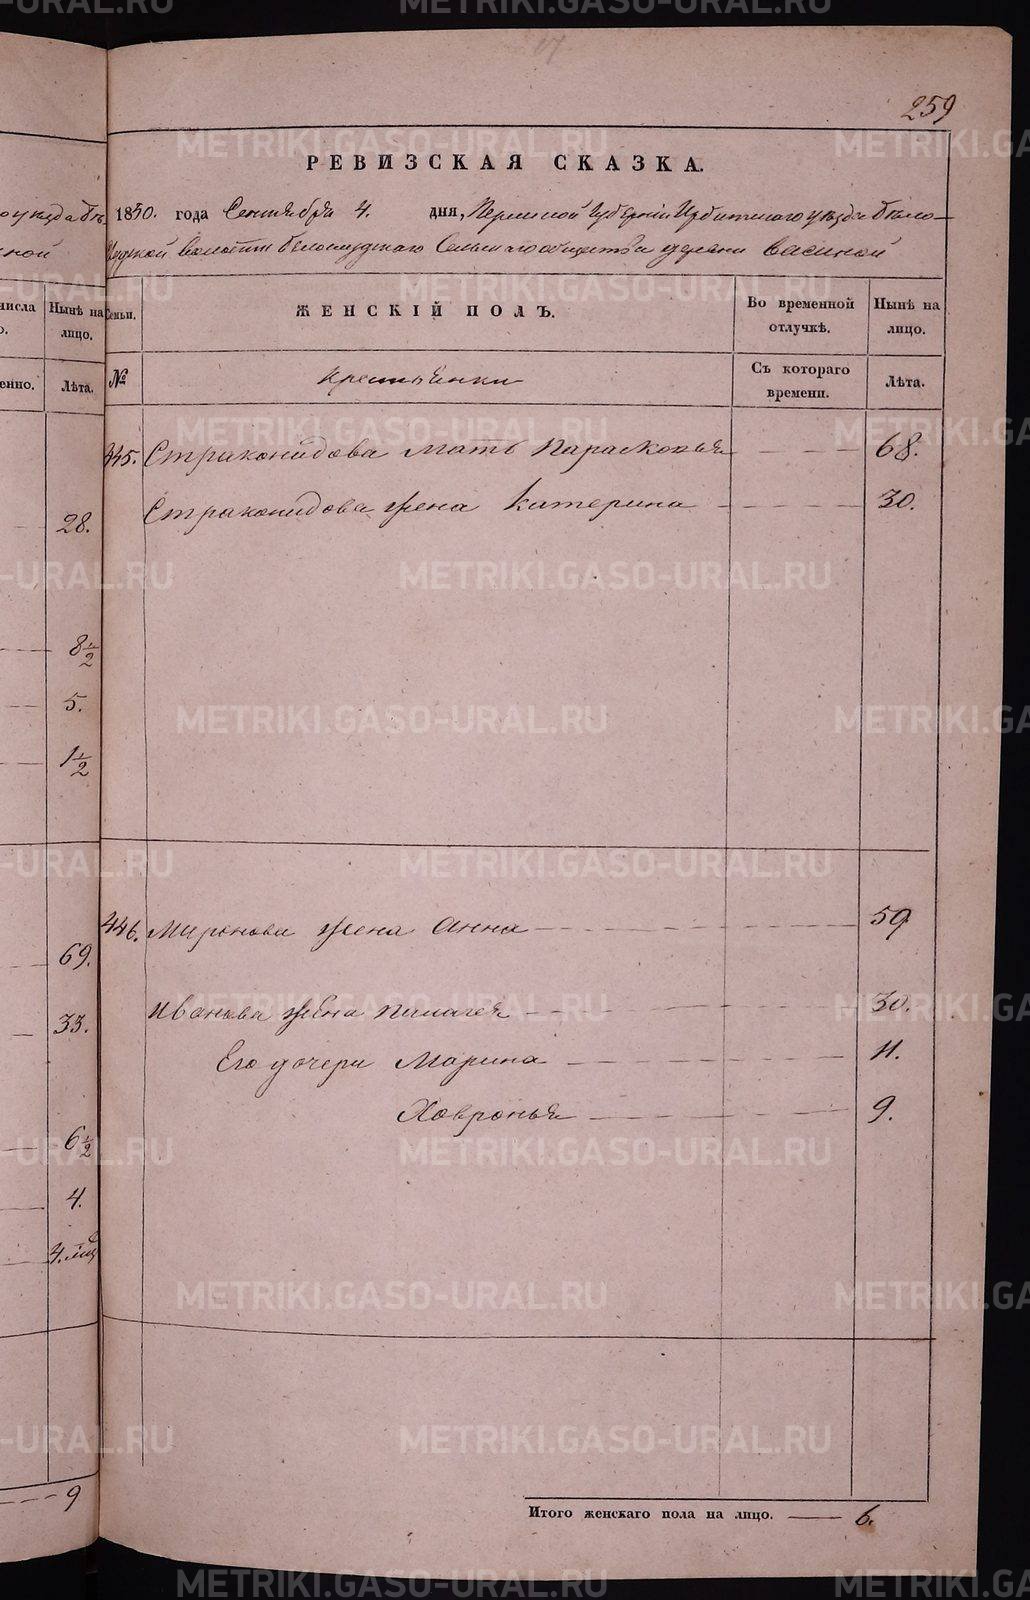 259
РЕВИЗСКАЯ СКАЗКА.
1850. года Сентября 4. дня, Пермской Губерніи Ирбитскаго уезда Бело-
слудской волости белослудскаго Сельскаго общества деревни Васиной
Семьи. ЖЕНСКІЙ ПОЛЪ. Во временной отлучкѣ. Нынѣ на лицо.
№ Крестьянки Съ котораго времени. Лѣта.
445. Страконидова мать Парасковья 68.
Страконидова жена Катерина 30.
446. Миронова жена Анна 59
Иванова жена Пилагея 30.
Его дочери Марина 11.
Ховронья 9.
Итого женскаго пола на лицо. 6.
уезда бѣ
ной
числа Нынѣ на лицо.
енно. Лѣта.
28.
8 1/2
5.
1 1/2
69.
33.
6 1/2
4.
9
METRIKI.GASO-URAL.RU